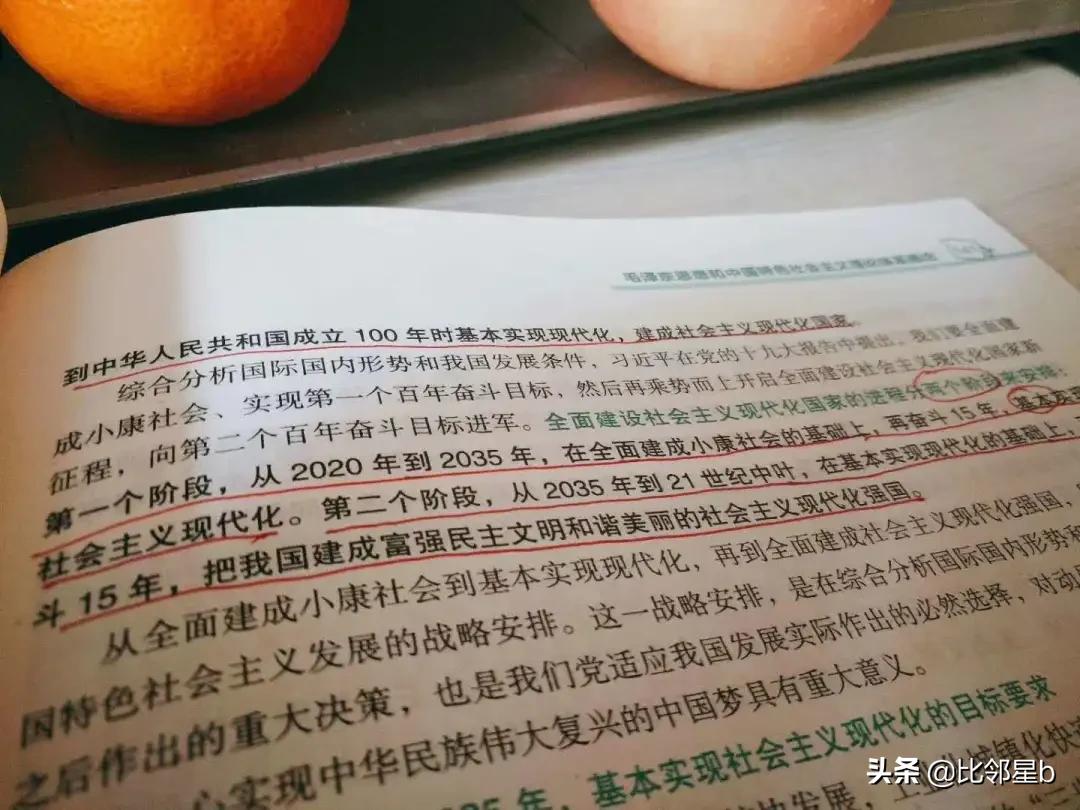 毛泽东思想和中国特色社会主义理论体系概论
到中华人民共和国成立 100 年时基本实现现代化，建成社会主义现代化国家。
综合分析国际国内形势和我国发展条件，习近平在党的十九大报告中提出，我们要全面建
成小康社会、实现第一个百年奋斗目标，然后再乘势而上开启全面建设社会主义现代化国家新
征程，向第二个百年奋斗目标进军。全面建设社会主义现代化国家的进程分两个阶段来安排：
第一个阶段，从 2020 年到 2035 年，在全面建成小康社会的基础上，再奋斗 15 年，基本实现
社会主义现代化。第二个阶段，从 2035 年到 21 世纪中叶，在基本实现现代化的基础上，
斗 15 年，把我国建成富强民主文明和谐美丽的社会主义现代化强国。
从全面建成小康社会到基本实现现代化，再到全面建成社会主义现代化强国，
国特色社会主义发展的战略安排。这一战略安排，是在综合分析国际国内形势和
之后作出的重大决策，也是我们党适应我国发展实际作出的必然选择，对动
心实现中华民族伟大复兴的中国梦具有重大意义。
35 年，基本实现社会主义现代化的目标要求
城镇化快速
头条 @比邻星b